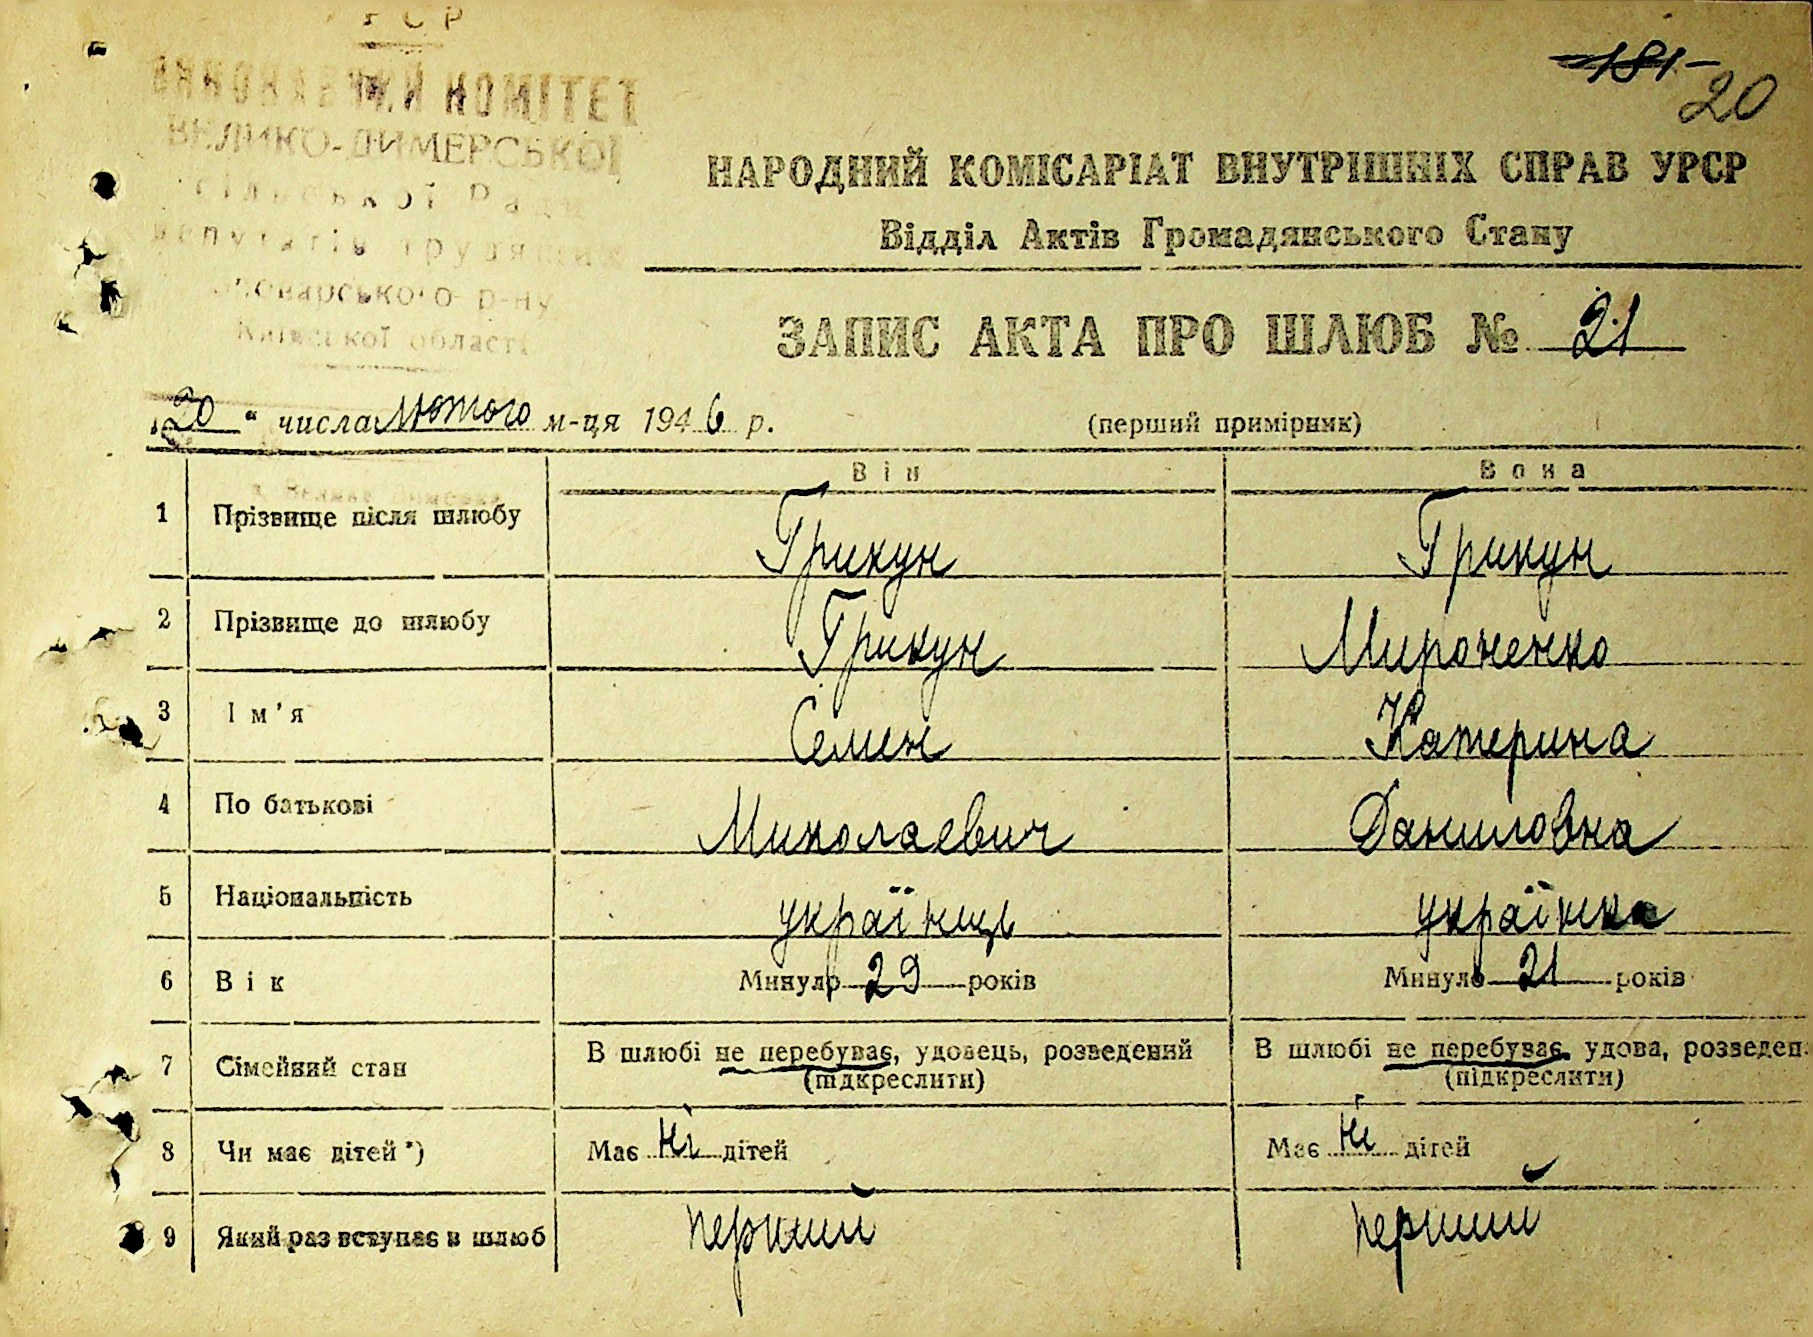 УРСР
ВИКОНАВЧИЙ КОМІТЕТ
ВЕЛИКО-ДИМЕРСЬКОЇ
сільської Ради
депутатів трудящих
Броварського р-ну
Київської області
181
20
НАРОДНИЙ КОМІСАРІАТ ВНУТРІШНІХ СПРАВ УРСР
Відділ Актів Громадянського Стану
ЗАПИС АКТА ПРО ШЛЮБ № 21
„20“ числа Лютого м-ця 1946 р. (перший примірник)
Він Вона
1 Прізвище після шлюбу Грикун Грикун
2 Прізвище до шлюбу Грикун Мироненко
3 Ім'я Семен Катерина
4 По батькові Миколаевич Даниловна
5 Національність українець українка
6 Вік Минуло 29 років Минуло 21 років
7 Сімейний стан В шлюбі не перебуває, удовець, розведений В шлюбі не перебуває, удова, розведен.
(підкреслити) (підкреслити)
8 Чи має дітей*) Має ні дітей Має ні дітей
9 Який раз вступає в шлюб перший перший